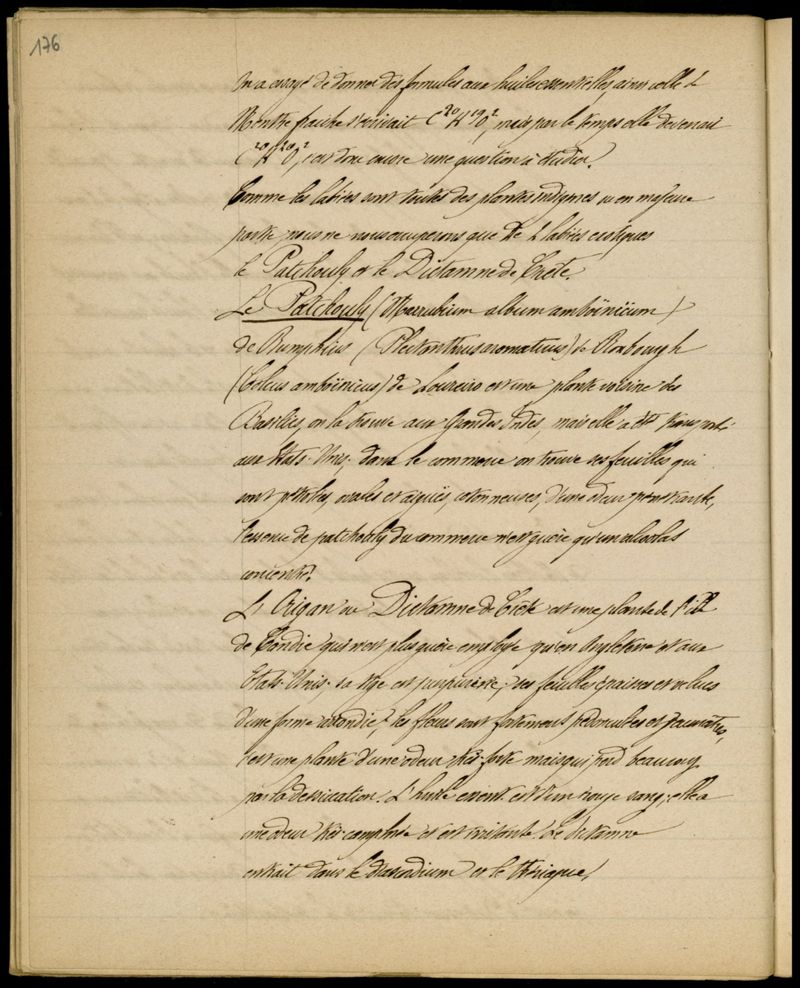 176
On a essayé de donner des formules aux huiles essentielles, ainsi celle de
Menthe fraiche s'écrivait C²⁰H¹⁹O², mais par le temps elle devenait
C²⁰H²⁰O², c'est donc encore une question à étudier.
Comme les labiées sont toutes des plantes indigènes ou en majeure
partie nous ne nous occuperons que de 2 labiées exotiques
le Patchouly et le Dictamne de Crète.
Le Patchouly (Marrubium album amboïnicum)
de Rumphius (Plectranthus aromaticus) de Roxbourgh
(Coleus amboïnicus) de Loureiro est une plante voisine des
Basilics, on la trouve aux Grandes Indes, mais elle a été transporté
aux Etats-Unis; dans le commerce on trouve ses feuilles qui
sont pétiolées, ovales et aiguës, cotonneuses, d'une odeur pénétrante,
l'essence de patchouly du commerce n'est guère qu'un alcoolat
concentré.
L'Origan ou Dictamne de Crète est une plante de l'ile
de Candie qui n'est plus guère employé qu'en Angleterre et aux
Etats-Unis; sa tige est purpurine; ses feuilles épaisses et velues
d'une forme arrondie, les fleurs sont fortement pédonculées et
c'est une plante d'une odeur très forte mais qui perd beaucoup
par la dessication. L'huile essent. est d'un rouge sang; elle a
une odeur très camphrée et est irritante. Le dictamne
entrait dans le diascordium et la thériaque.